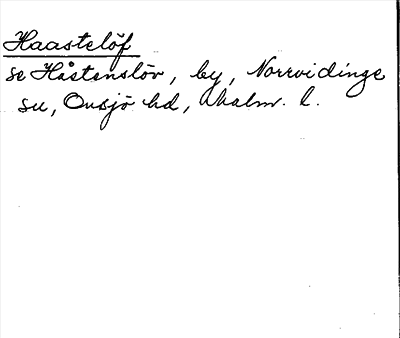 Haastelöf
se Håstenslöv, by, Norrvidinge
su, Onsjö hd, Malm. l.